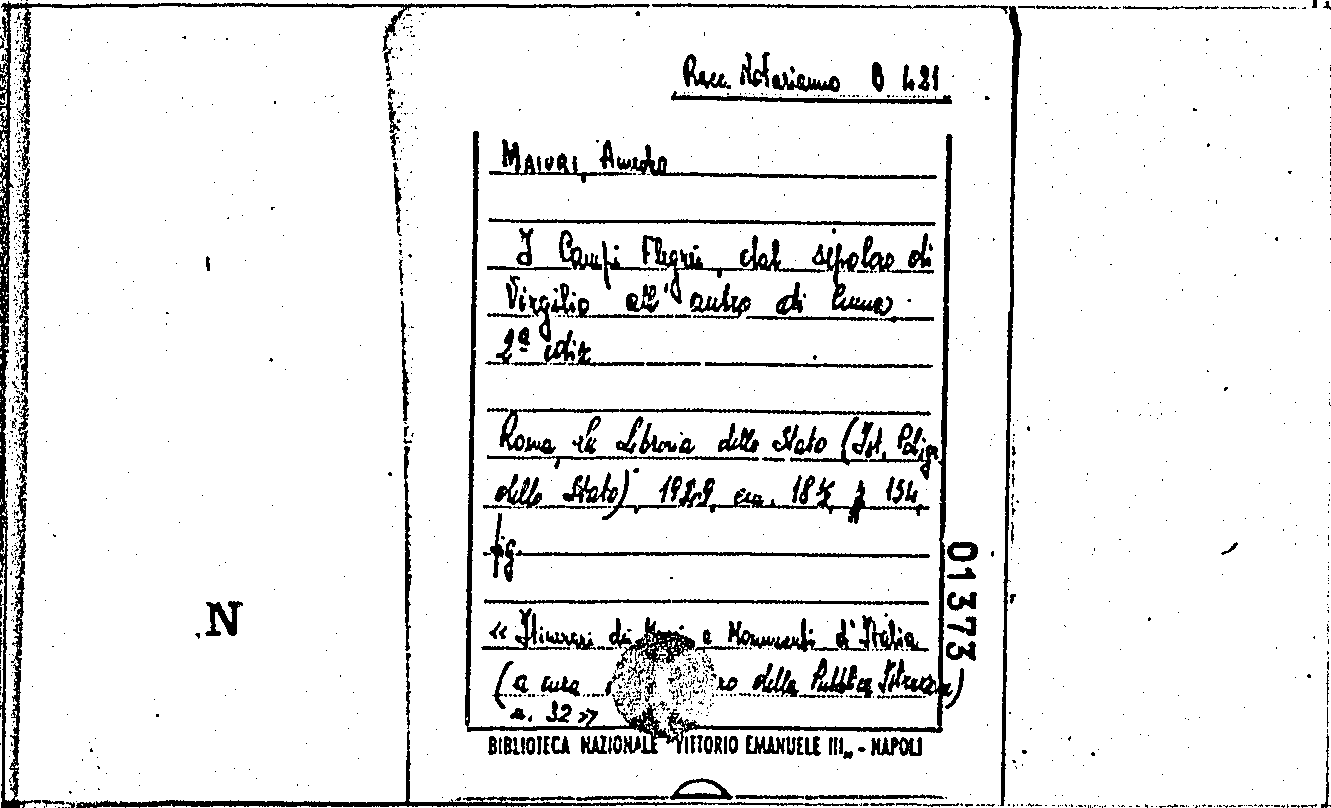 Racc. Notarianno B 421
MAIURI, Amedeo
I Campi Flegrei, dal sepolcro di
Virgilio all'antro di Cuma.
2ª ediz
Roma, La Libreria dello Stato (Ist. Poligr.
dello Stato), 1949, cm. 18½, p 154,
fig.
« Itinerari dei Musei e Monumenti d'Italia
(a cura ro della Pubblica Istruzione)
n. 32 »
01373
N
BIBLIOTECA NAZIONALE "VITTORIO EMANUELE III„ - NAPOLI